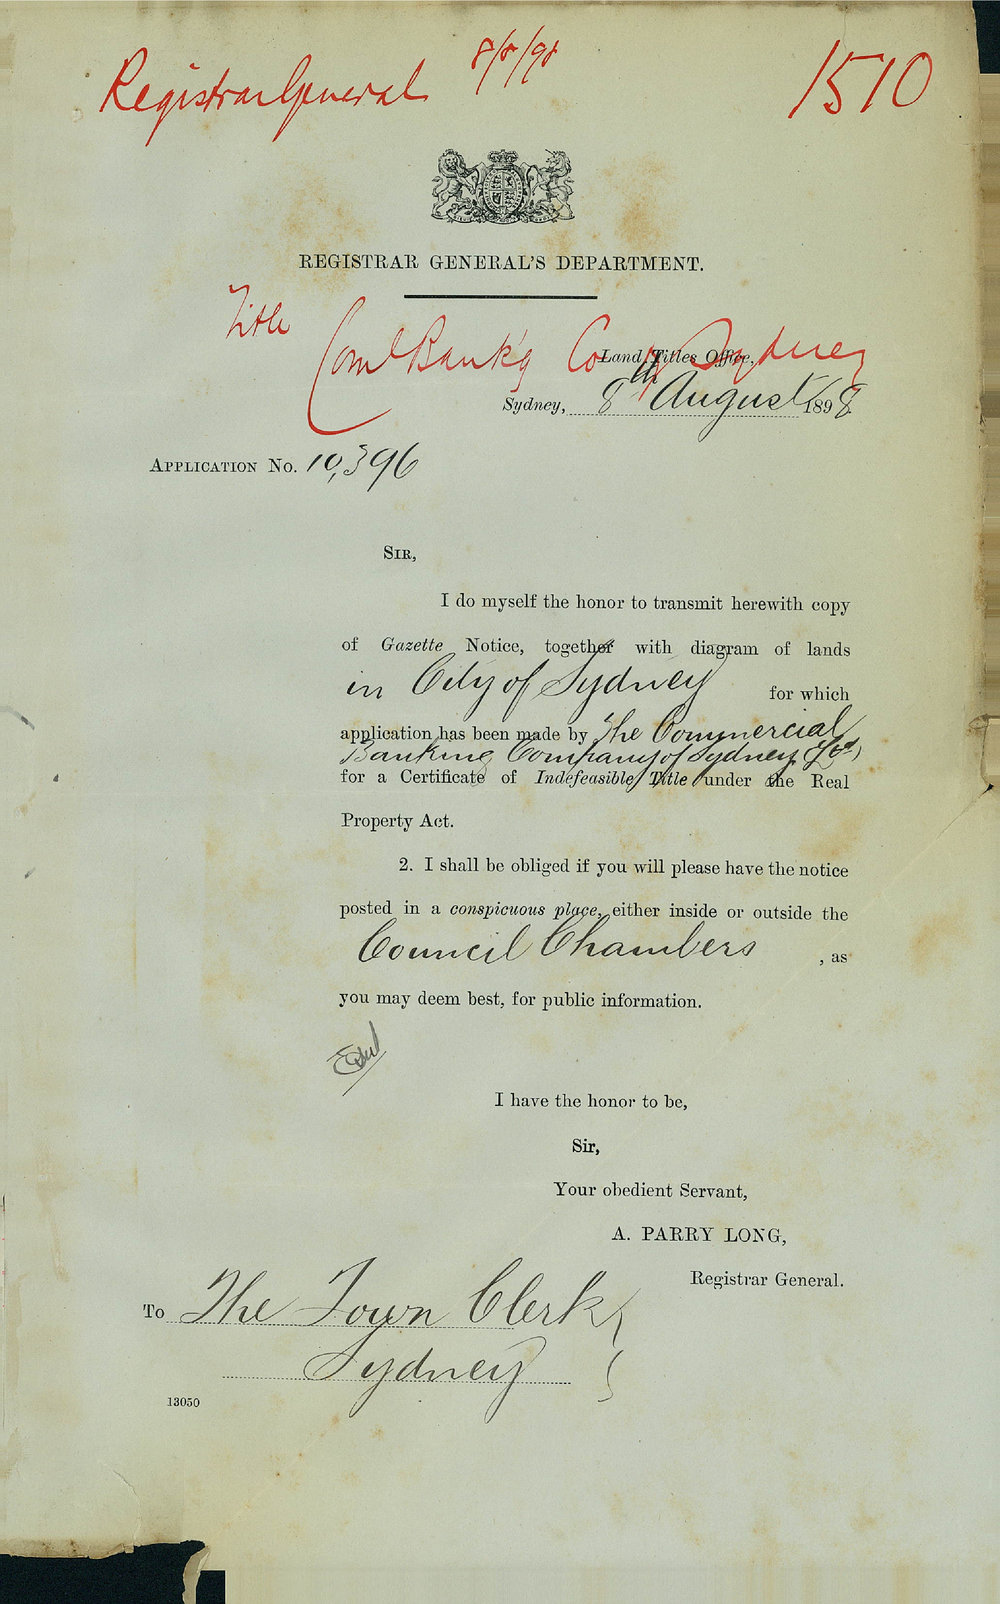 Registrar General 8/8/98 1510
REGISTRAR GENERAL'S DEPARTMENT.
Title
Coml Bank'g Co of Sydney
Land Titles Office,
Sydney, 8th August 1898
APPLICATION No. 10,396
SIR,
I do myself the honor to transmit herewith copy
of Gazette Notice, together with diagram of lands
in City of Sydney for which
application has been made by The Commercial
Banking Company of Sydney (Ltd)
for a Certificate of Indefeasible Title under the Real
Property Act.
2. I shall be obliged if you will please have the notice
posted in a conspicuous place, either inside or outside the
Council Chambers , as
you may deem best, for public information.
I have the honor to be,
Sir,
Your obedient Servant,
A. PARRY LONG,
Registrar General.
To The Town Clerk
Sydney
13050